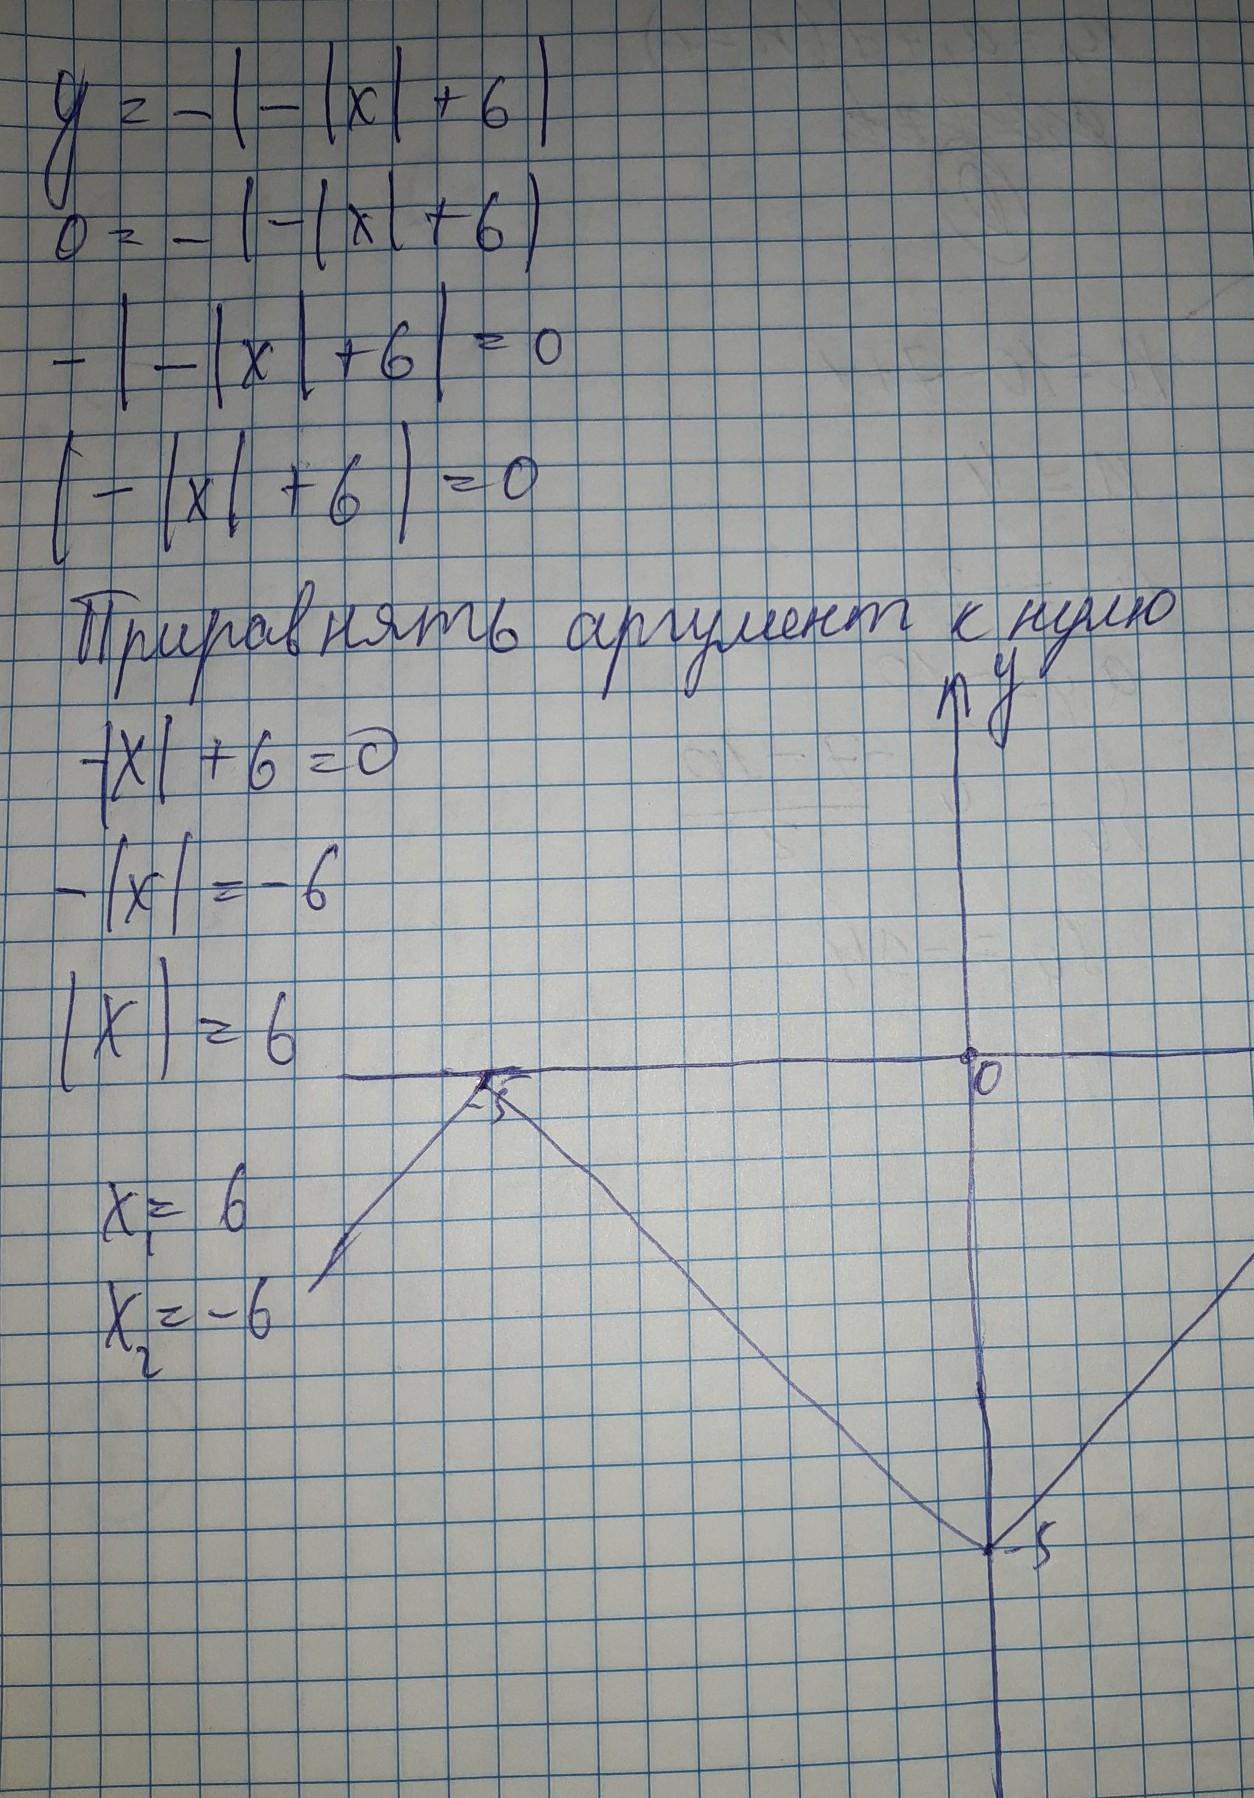 y = -|-|x| + 6|
0 = -|-|x| + 6|
-|-|x| + 6| = 0
|-|x| + 6| = 0
Приравнять аргумент к нулю
y
-|x| + 6 = 0
-|x| = -6
|x| = 6
0
-5
x₁ = 6
x₂ = -6
-5